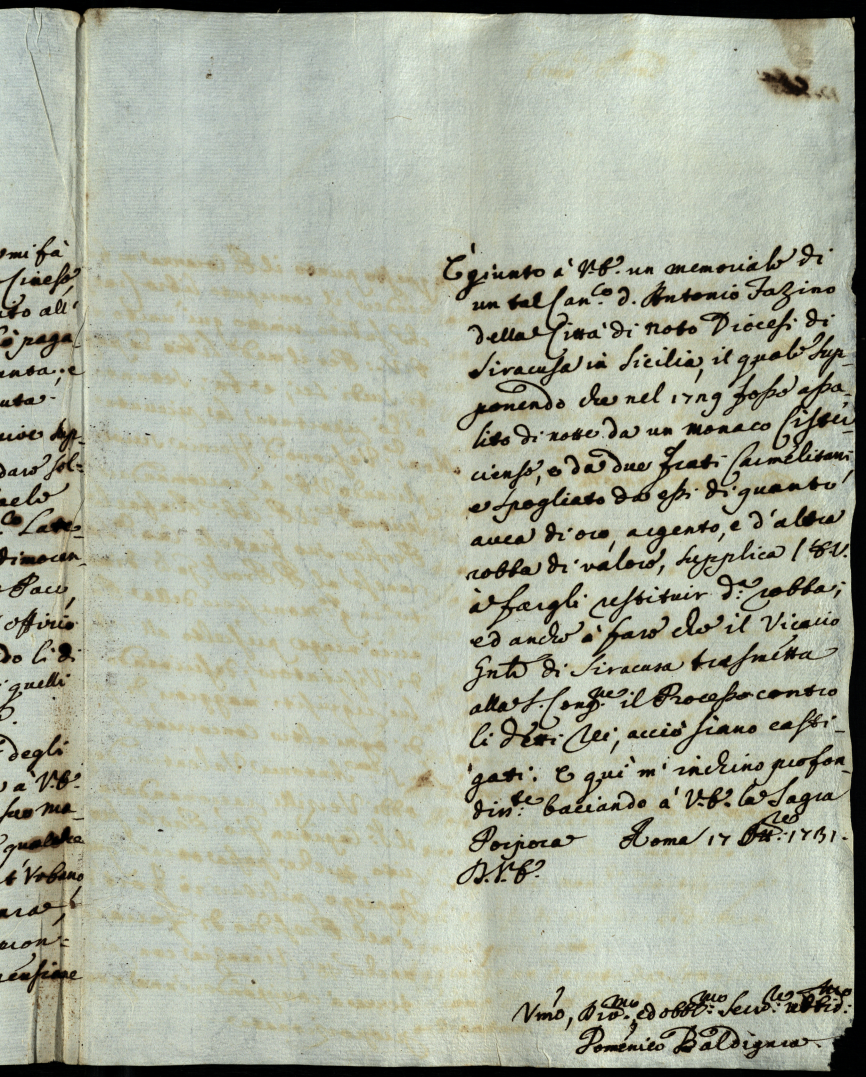 mi fà
Cinese
to all'
paga-
anta; e
uta.
sup-
dare sol-
Late-
dimoran-
Pace,
offitio
do li di
quelli
degli
à V. E.
suo ma-
qualche
Urbano
È giunto à V. E. un memoriale di
un tal Can.co D. Antonio Fazzino
della Città di Noto Diocesi di
Siracusa in Sicilia, il quale sup-
ponendo che nel 1729 fosse assa-
lito di notte da un monaco Cister-
ciense, e da due frati Carmelitani,
e spogliato da essi di quanto
avea di oro, argento, e d'altra
robba di valore, supplica l'E.V.
à fargli restituir d.a robba;
ed anche à fare che il Vicario
Gnle di Siracusa trasmetta
alla S. Cong.ne il Processo contro
li detti Rei, acciò siano casti-
gati. E quì m'inchino profon-
dam.te bacciando à V. E. la Sagra
Porpora Roma 17 1731.
D. V. E.
Umo, Divmo, ed obbmo Serv.re
Domenico Baldigiara